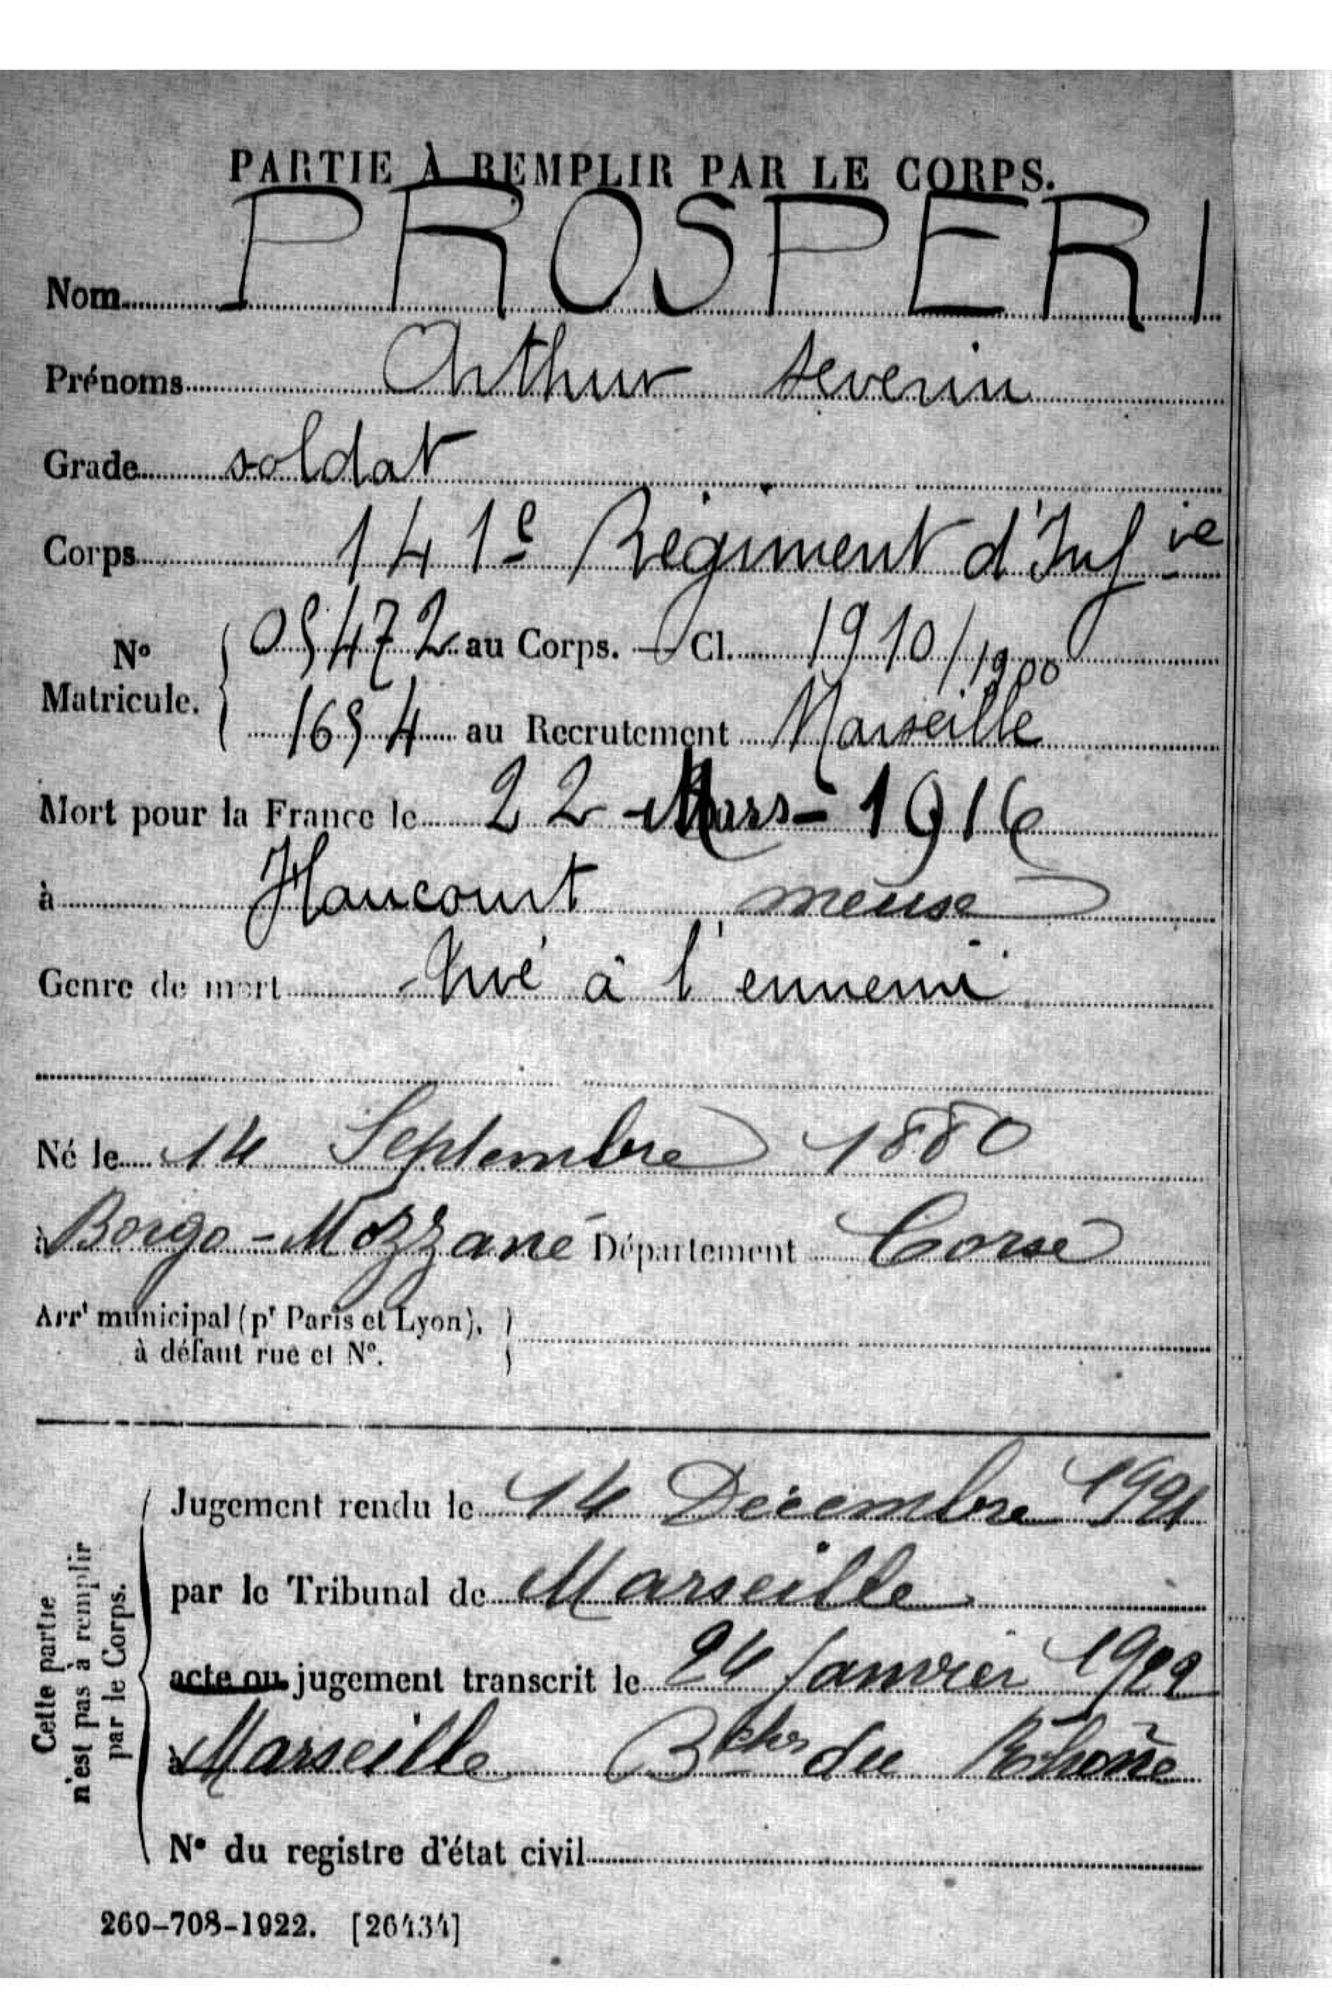 PARTIE À REMPLIR PAR LE CORPS.
Nom PROSPERI
Prénoms Arthur Severin
Grade soldat
Corps 141e Régiment d'Infie
No Matricule. 05472 au Corps. — Cl. 1910/1900
1654 au Recrutement Marseille
Mort pour la France le 22 Mars - 1916
à Haucourt meuse
Genre de mort Tué à l'ennemi
Né le 14 Septembre 1880
à Borgo-Mozzane Département Corse
Arrt municipal (pr Paris et Lyon),
à défaut rue et No.
Cette partie
n'est pas à remplir
par le Corps.
Jugement rendu le 14 Décembre 1921
par le Tribunal de Marseille
acte ou jugement transcrit le 24 Janvier 1922
à Marseille Bches du Rhône
No du registre d'état civil
260-708-1922. [26434]